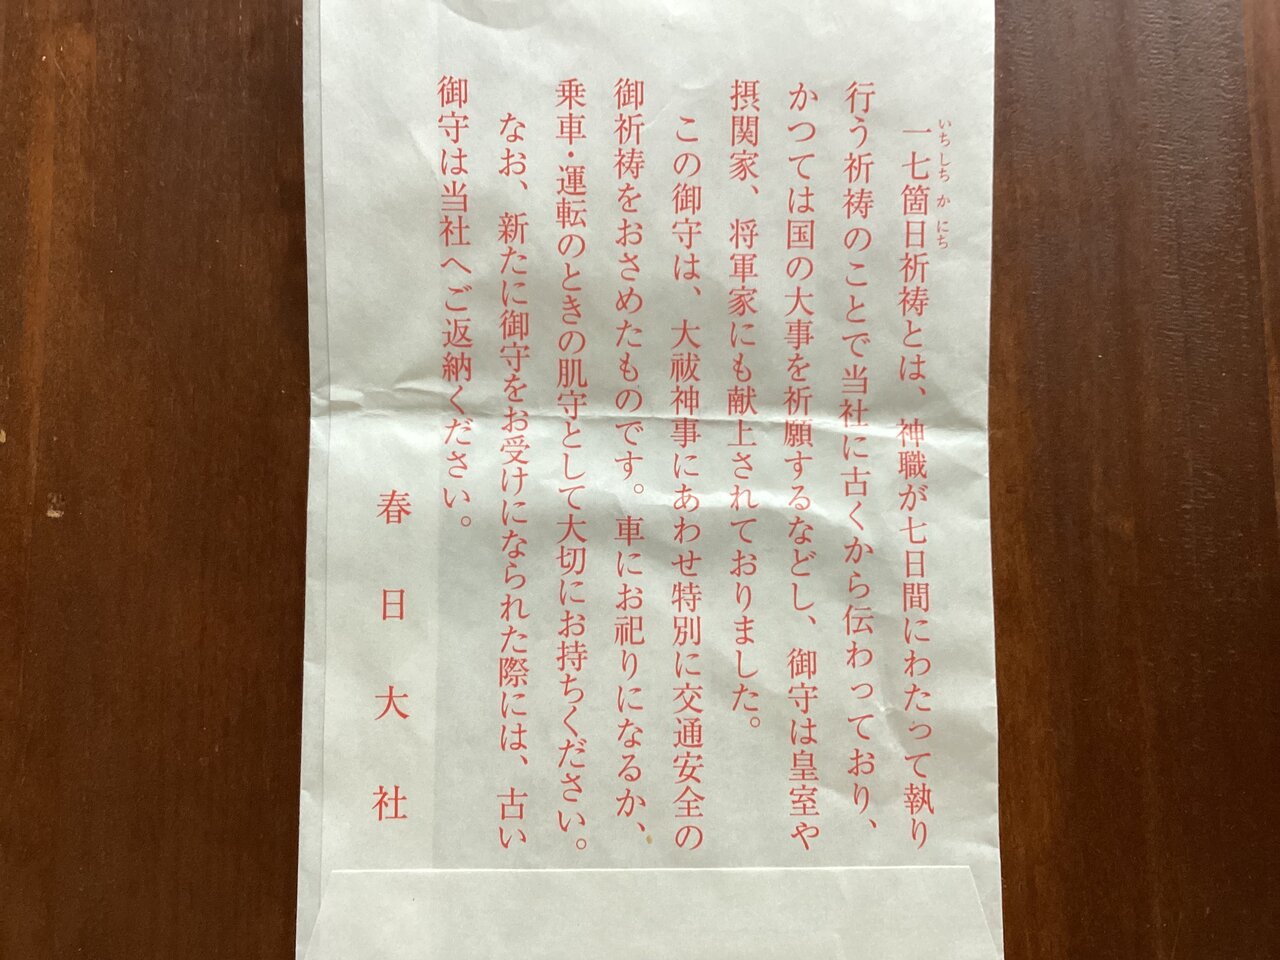 いちしちかにち
一七箇日祈祷とは、神職が七日間にわたって執り
行う祈祷のことで当社に古くから伝わっており、
かつては国の大事を祈願するなどし、御守は皇室や
摂関家、将軍家にも献上されておりました。
この御守は、大祓神事にあわせ特別に交通安全の
御祈祷をおさめたものです。車にお祀りになるか、
乗車・運転のときの肌守として大切にお持ちください。
なお、新たに御守をお受けになられた際には、古い
御守は当社へご返納ください。
春日大社